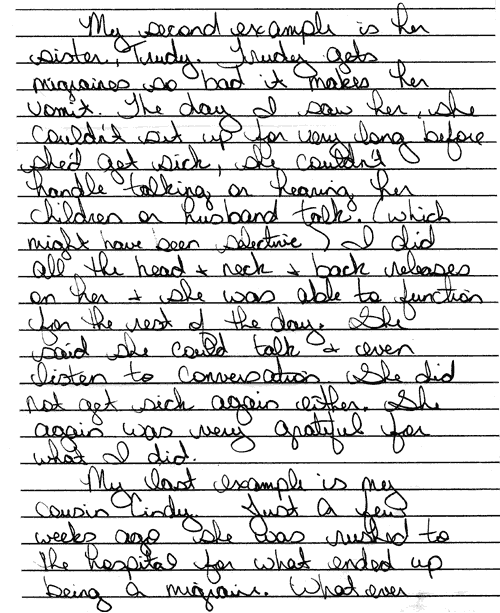 My second example is her
sister, Trudy. Trudy gets
migraines so bad it makes her
vomit. The day I saw her, she
couldn't sit up for very long before
she'd get sick, she couldn't
handle talking or hearing her
children or husband talk. (which
might have been selective) I did
all the head + neck + back releases
on her + she was able to function
for the rest of the day. She
said she could talk + even
listen to conversation. She did
not get sick again either. She
again was very grateful for
what I did.
My last example is my
cousin Cindy. Just a few
weeks ago she was rushed to
the hospital for what ended up
being a migrain. What ever